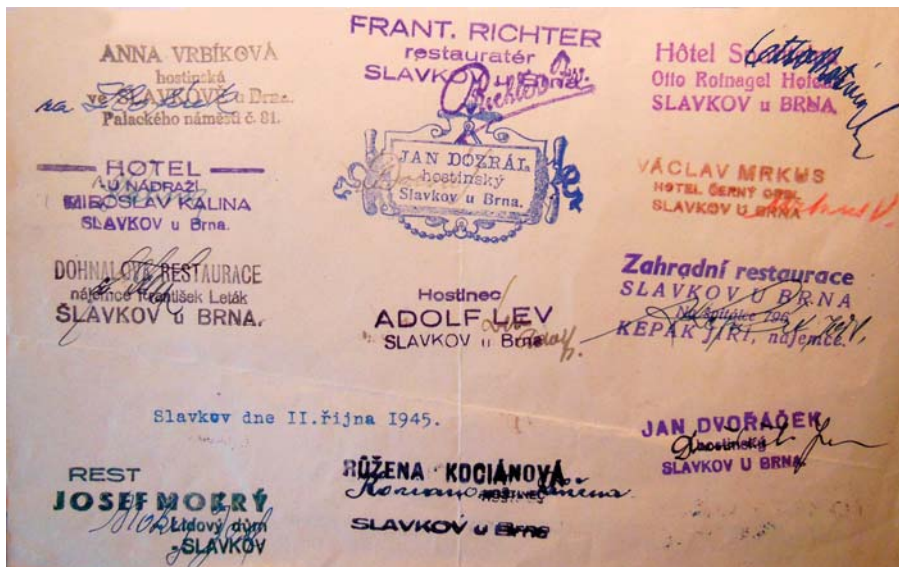 ANNA VRBÍKOVÁ
hostinská
ve SLAVKOVĚ u Brna.
Palackého náměstí č. 81.
FRANT. RICHTER
restauratér
SLAVKOV u Brna
Hôtel
Otto Rotnagel
SLAVKOV u BRNA
HOTEL
U NÁDRAŽÍ
MIROSLAV KALINA
SLAVKOV u Brna.
JAN DOZRÁL
hostinský
Slavkov u Brna.
VÁCLAV MRKUS
HOTEL ČERNÝ OREL
SLAVKOV U BRNA
DOHNALOVA RESTAURACE
nájemce František Leták
ŠLAVKOV u BRNA.
Hostinec
ADOLF LEV
SLAVKOV u Brna
Lev
Adolf.
Zahradní restaurace
SLAVKOV U BRNA
Na špitálce 196
KEPÁK JIŘÍ, nájemce.
Slavkov dne II.října 1945.
JAN DVOŘÁČEK
hostinský
SLAVKOV U BRNA
REST
JOSEF MOKRÝ
Lidový dům
SLAVKOV
RŮŽENA KOCIÁNOVÁ
HOSTINEC
SLAVKOV u Brna